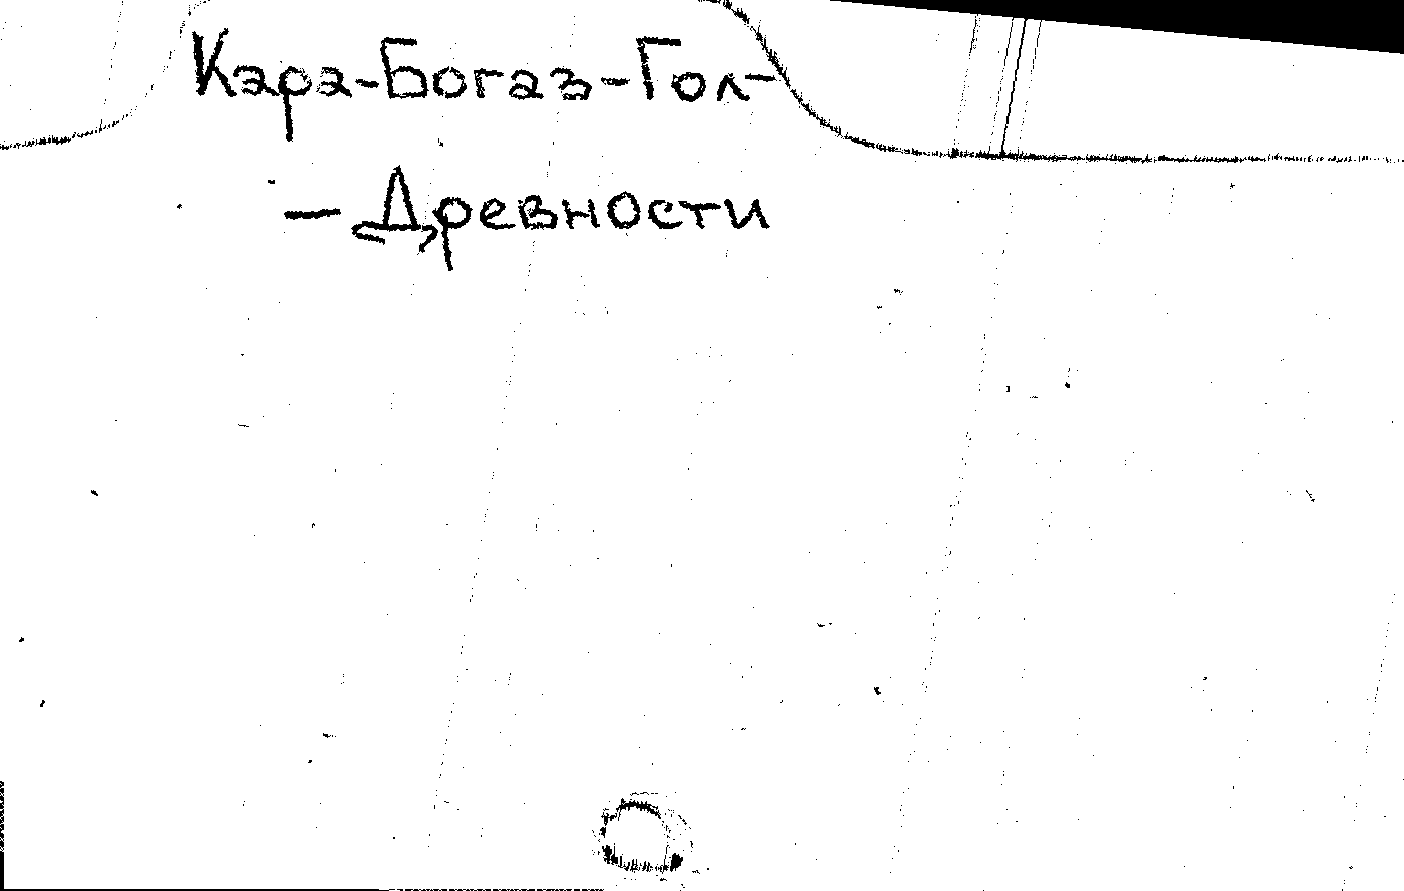 Кара-Богаз-Гол-
— Древности